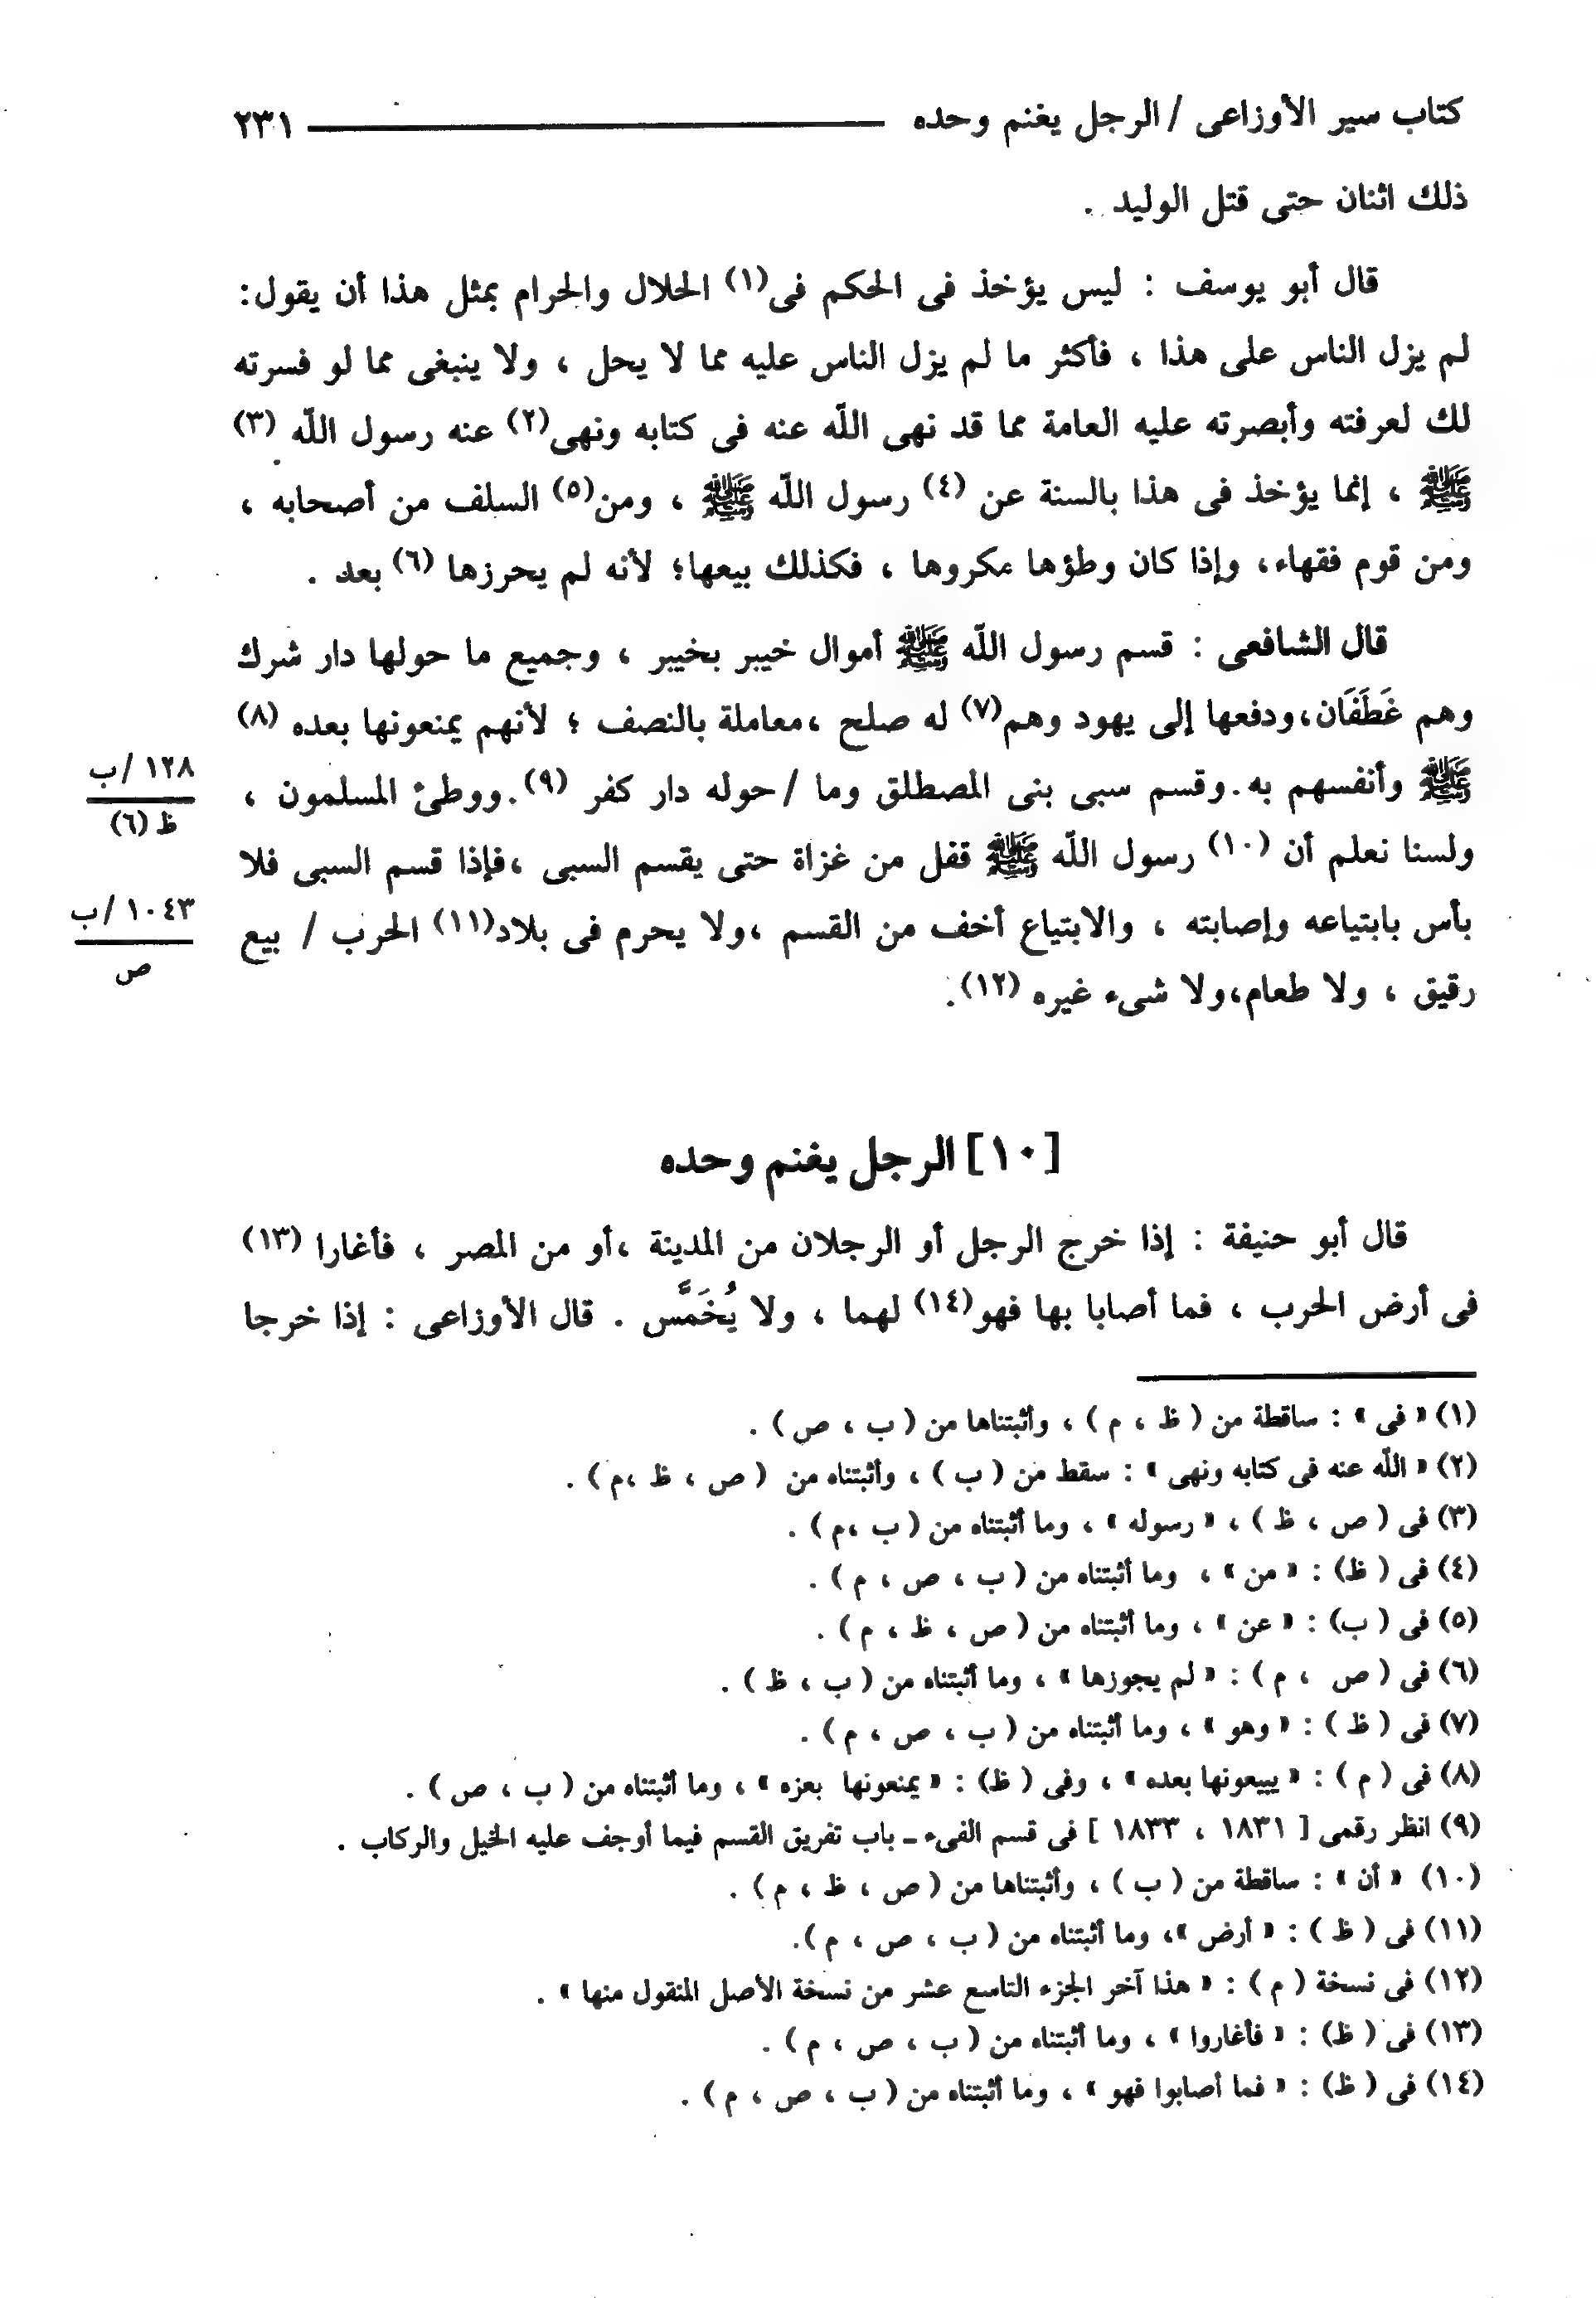 كتاب سير الأوزاعى / الرجل يغنم وحده ٢٣١
ذلك اثنان حتى قتل الوليد .
قال أبو يوسف : ليس يؤخذ فى الحكم فى(١) الحلال والحرام بمثل هذا أن يقول:
لم يزل الناس على هذا ، فأكثر ما لم يزل الناس عليه مما لا يحل ، ولا ينبغى مما لو فسرته
لك لعرفته وأبصرته عليه العامة مما قد نهى اللّه عنه فى كتابه ونهى(٢) عنه رسول اللّه (٣)
ﷺ ، إنما يؤخذ فى هذا بالسنة عن (٤) رسول اللّه ﷺ ، ومن(٥) السلف من أصحابه ،
ومن قوم فقهاء، وإذا كان وطؤها مكروها ، فكذلك بيعها؛ لأنه لم يحرزها (٦) بعد .
قال الشافعى : قسم رسول اللّه ﷺ أموال خيبر بخيبر ، وجميع ما حولها دار شرك
وهم غَطَفَان،ودفعها إلى يهود وهم(٧) له صلح ،معاملة بالنصف ؛ لأنهم يمنعونها بعده (٨)
ﷺ وأنفسهم به.وقسم سبى بنى المصطلق وما / حوله دار كفر (٩).ووطئ المسلمون ،
١٢٨ /ب
ظ (٦)
ولسنا نعلم أن (١٠) رسول اللّه ﷺ قفل من غزاة حتى يقسم السبى ،فإذا قسم السبى فلا
بأس بابتياعه وإصابته ، والابتياع أخف من القسم ،ولا يحرم فى بلاد(١١) الحرب / بيع
١٠٤٣ /ب
ص
رقيق ، ولا طعام،ولا شىء غيره (١٢).
[١٠] الرجل يغنم وحده
قال أبو حنيفة : إذا خرج الرجل أو الرجلان من المدينة ،أو من المصر ، فأغارا (١٣)
فى أرض الحرب ، فما أصابا بها فهو(١٤) لهما ، ولا يُخَمَّس . قال الأوزاعى : إذا خرجا
(١) « فى » : ساقطة من ( ظ ، م ) ، وأثبتناها من ( ب ، ص ) .
(٢) « اللّه عنه فى كتابه ونهى » : سقط من ( ب ) ، وأثبتناه من ( ص ، ظ ،م ) .
(٣) فى ( ص ، ظ ) ، « رسوله » ، وما أثبتناه من ( ب ،م ) .
(٤) فى ( ظ) : « من » ، وما أثبتناه من ( ب ، ص ، م ) .
(٥) فى ( ب) : « عن » ، وما أثبتناه من ( ص ، ظ ، م ) .
(٦) فى ( ص ، م ) : « لم يجوزها » ، وما أثبتناه من ( ب ، ظ ) .
(٧) فى ( ظ ) : « وهو » ، وما أثبتناه من ( ب ، ص ، م ) .
(٨) فى ( م ) : « يبيعونها بعده » ، وفى ( ظ) : « يمنعونها بعزه » ، وما أثبتناه من ( ب ، ص ) .
(٩) انظر رقمى [ ١٨٣١ ، ١٨٣٣ ] فى قسم الفىء ــ باب تفريق القسم فيما أوجف عليه الخيل والركاب .
(١٠) « أن » : ساقطة من ( ب ) ، وأثبتناها من ( ص ، ظ ، م ) .
(١١) فى ( ظ ) : « أرض »، وما أثبتناه من ( ب ، ص ، م ).
(١٢) فى نسخة ( م ) : « هذا آخر الجزء التاسع عشر من نسخة الأصل المنقول منها » .
(١٣) فى ( ظ) : « فأغاروا » ، وما أثبتناه من ( ب ، ص ، م ) .
(١٤) فى ( ظ) : « فما أصابوا فهو » ، وما أثبتناه من ( ب ، ص ، م ) .